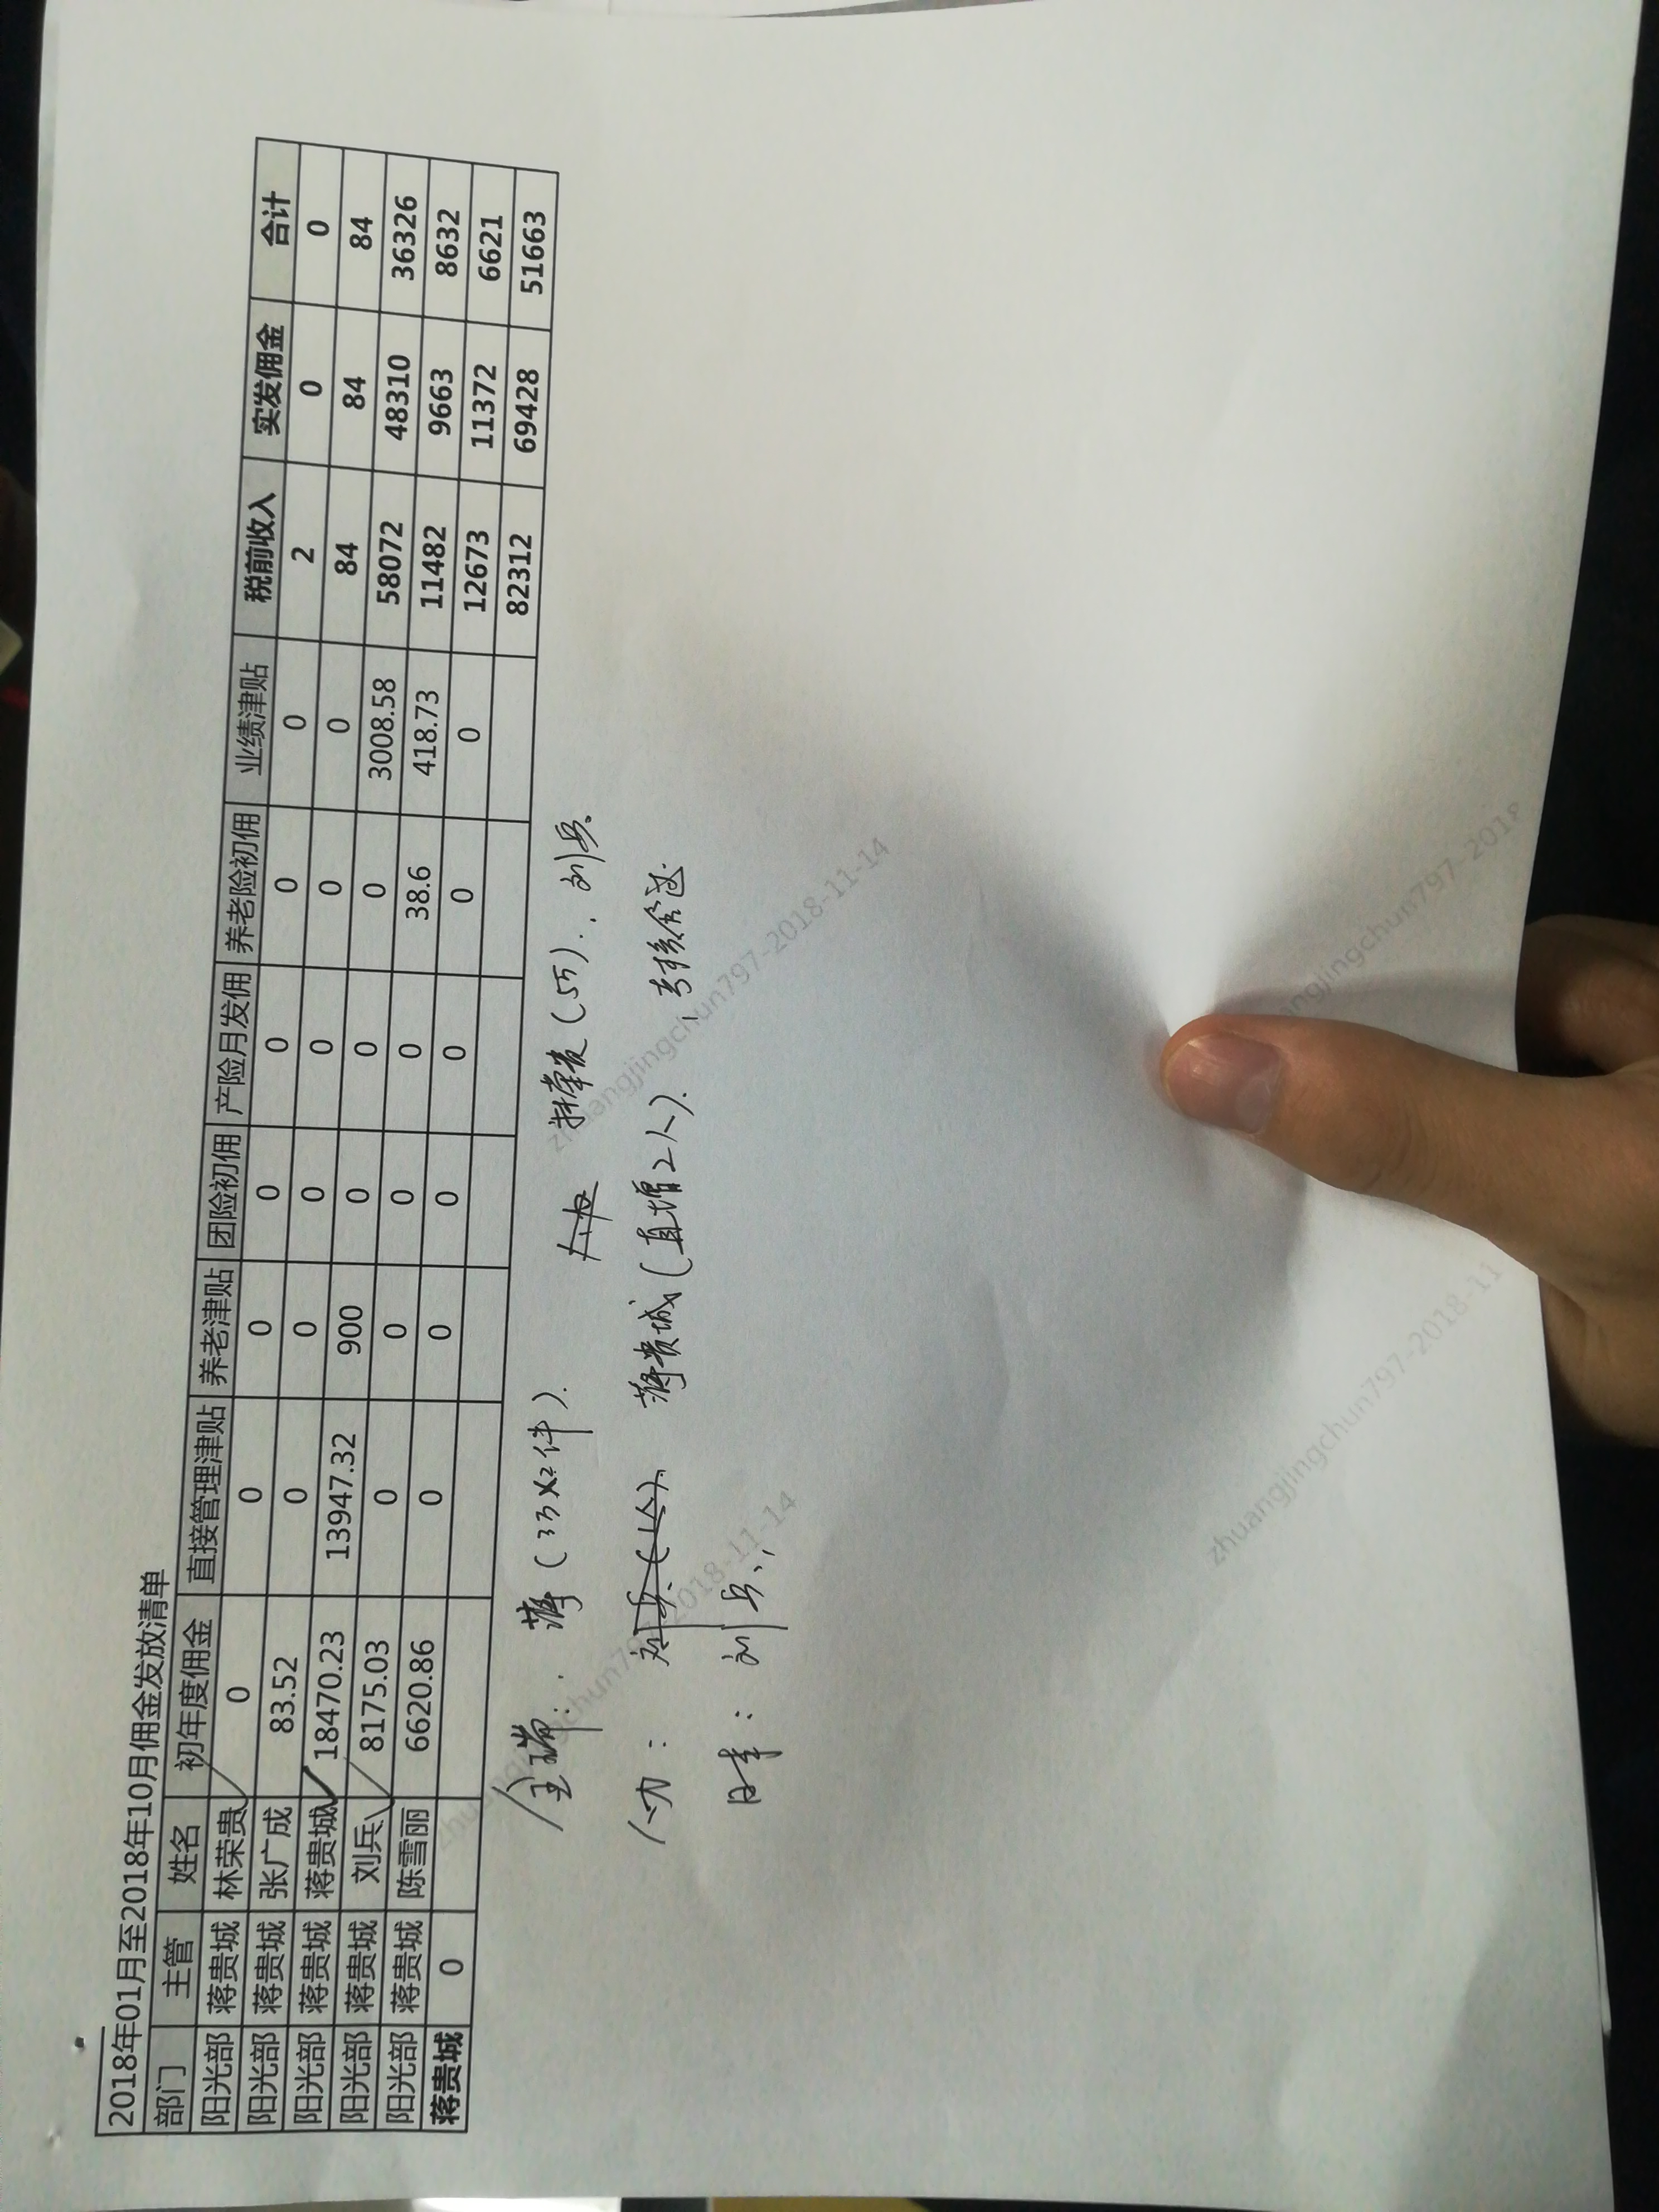 2018年01月至2018年10月佣金发放清单
部门 主管 姓名 初年度佣金 直接管理津贴 养老津贴 团险初佣 产险月发佣 养老险初佣 业绩津贴 税前收入 实发佣金 合计
阳光部 蒋贵城 林荣贵 0 0 0 0 0 0 0 2 0 0
阳光部 蒋贵城 张广成 83.52 0 0 0 0 0 0 84 84 84
阳光部 蒋贵城 蒋贵城 18470.23 13947.32 900 0 0 0 3008.58 58072 48310 36326
阳光部 蒋贵城 刘兵 8175.03 0 0 0 0 38.6 418.73 11482 9663 8632
阳光部 蒋贵城 陈雪丽 6620.86 0 0 0 0 0 0 12673 11372 6621
蒋贵城 0 82312 69428 51663
全瑞: 蒋(3万×2件). 林荣贵(5万). 刘兵.
蒋贵城(直增2人). 考核合过.
日幸: 刘兵.
zhuangjingchun797-2018-11-14
zhuangjingchun797-2018-11-14
zhuangjingchun797-2018-11
zhuangjingchun797-2018